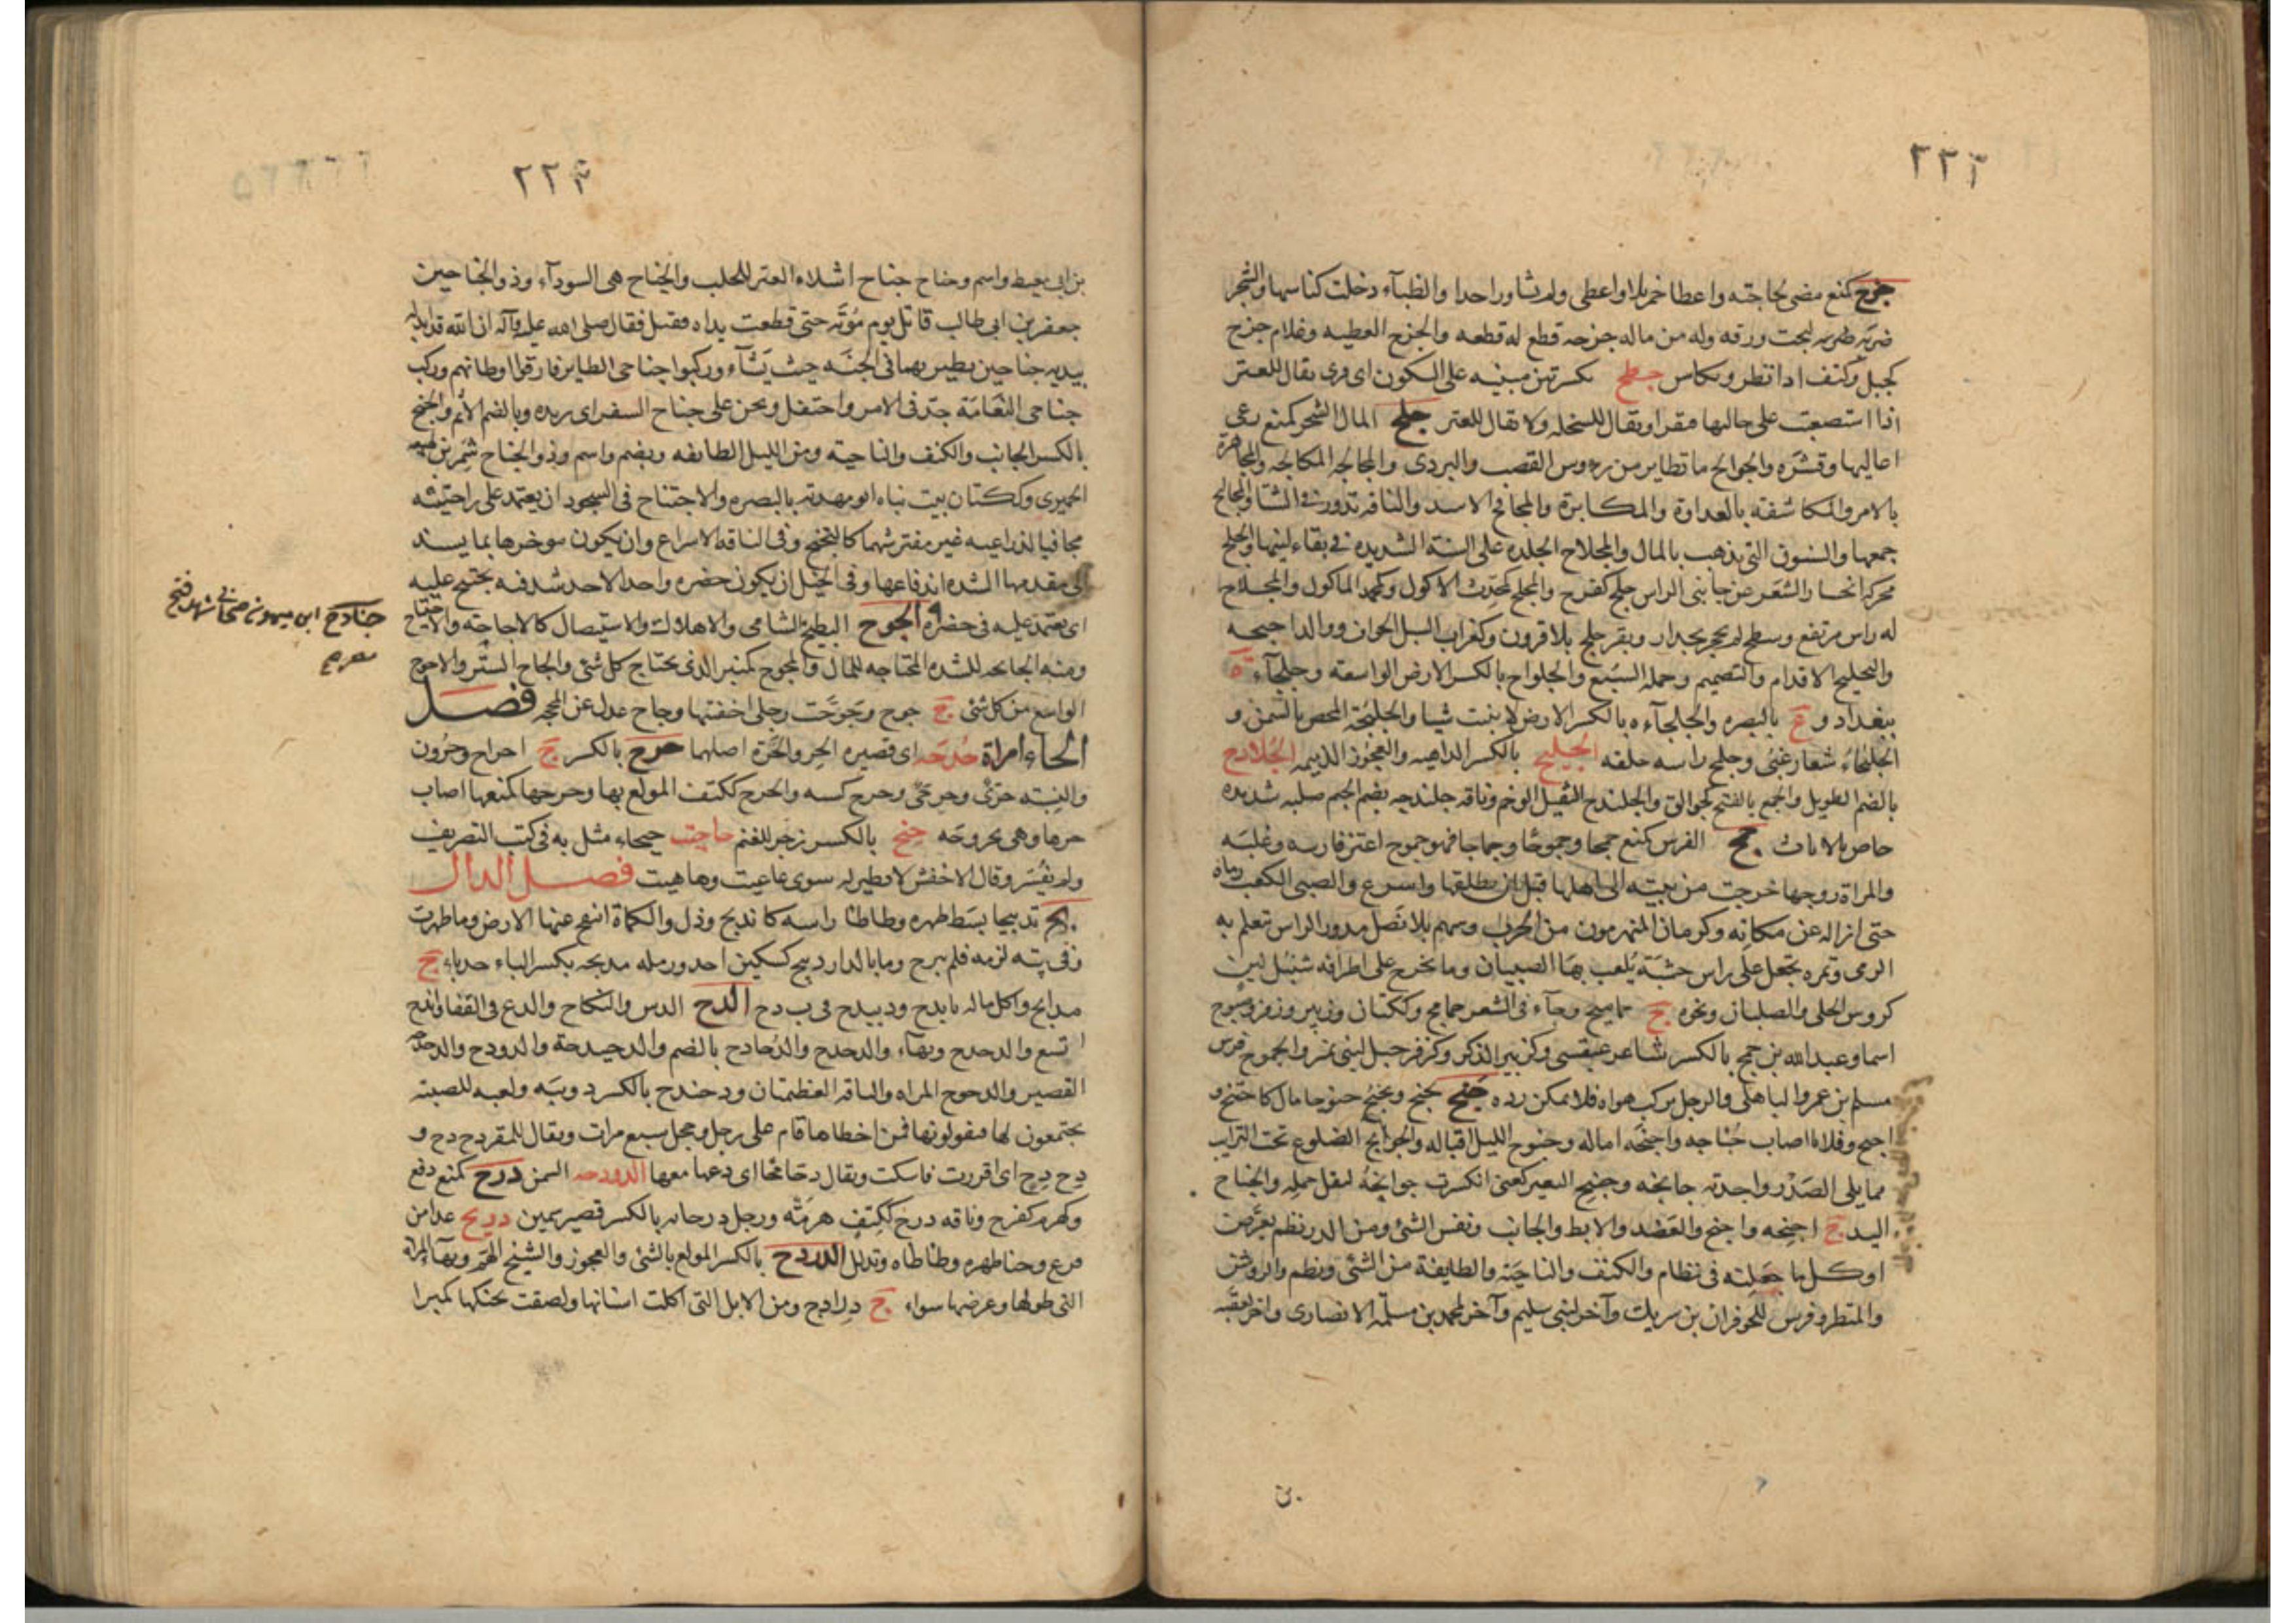 ٢٢٢
جزح كمنع مضى لحاجته واعطا عطاء جزيلا او اعطى ولم يشاور احدا والظباء دخلت كناسها والشجر
ضربه ليحت ورقه وله من ماله جزحه قطع له قطعه والجزح العطيه وغلام جزح
كجبل وكتف اذا نظر وتكايس جطح بكسرتين مبنيه على السكون اى قرى يقال للعنز
اذا استصعبت على حالبها فتقر او يقال للسخله ولا يقال للعنز جلح المال الشجر كمنع رعى
اعاليها وقشره والجوالح ما تطاير من رءوس القصب والبردى والمجالحه المكالحه والمجاهرة
بالامر والمكاشفة بالعداوة والمكابرة والمجالح الاسد والناقه تدر فى الشتا والمجاليح
جمعها والسنون التى تذهب بالمال والمجلاح الجلده على السنة الشديده فى بقاء لبنها والجلح
محركه انحسار الشعر عن جانبى الراس جلح كفرح والمجلح كمحدث الاكول وكمحمد الماكول والمجلاح
له راس مرتفع وسطح لم يحجر بجدار وبقر جلح بلا قرون وكغراب السيل الجراف ووالد احيحه
والتجليح الاقدام والتصميم وحملة السبع والجلواح بالكسر الارض الواسعة وجلحاء ة
ببغداد و ع بالبصره والجلحاءة بالكسر الارض لا تنبت شيا والجليحة المحض بالسمن و
الجليحاء شعار غنى وجلمح راسه حلقه الجلبح بالكسر الداهيه والعجوز الدميمه الجلادح
بالضم الطويل والجمع بالفتح كجوالق والجلندح الثقيل الوخم وناقه جلندحه بضم الجيم صلبه شديده
خاص بالاناث جمح الفرس كمنع جمحا وجموحا وجماحا فهو جموح اعتز فارسه وغلبه
والمراة زوجها خرجت من بيته الى اهلها قبل ان يطلقها واسرع والصبى الكعب رماه
حتى ازاله عن مكانه وكرمان المنهزمون من الحرب وسهم بلا نصل مدور الراس تعلم به
الرمى وتمره تجعل على راس خشبة يلعب بها الصبيان وما يخرج على اطرافه شبه سنبل لين
كروس الحلى والصليان ونحوه ج جماميح وجاء فى الشعر جمامح وككتان وزبير وزفر وصبوح
اسما وعبد الله بن جمح بالكسر شاعر عبقسى وكزبير الذكر وكزفر جبل لبنى نمير والجموح فرس
مسلم بن عمرو الباهلى والرجل يركب هواه فلا يمكن رده جنح يجنح ويجنح جنوحا مال كاجتنح و
اجنح وفلانا اصاب جناحه واجنحه اماله وجنوح الليل اقباله والجوانح الضلوع تحت الترايب
مما يلى الصدر واحدته جانحه وجنح البعير كعنى انكسرت جوانحه لثقل حمله والجناح
اليد ج اجنحه واجنح والعضد والابط والجانب ونفس الشئ ومن الدر نظم يعرض
او كل ما جعلته فى نظام والكنف والناحيه والطايفة من الشئ ويضم والروشن
والمنظر وفرس للحوفزان بن شريك وآخر لبنى سليم وآخر لمحمد بن مسلمة الانصارى واخر لعقبه
٢٢٣
بن ابى معيط واسم وجناح جناح اشلاء العنز للحلب والجناح هى السوداء وذو الجناحين
جعفر بن ابى طالب قاتل يوم مؤته حتى قطعت يداه فقتل فقال صلى الله عليه وآله ان الله قد ابدله
بيديه جناحين يطير بهما فى الجنه حيث يشاء وركبوا جناحى الطاير فارقوا اوطانهم وركب
جناحى النعامة جد فى الامر واحتفل ونحن على جناح السفر اى نريده وبالضم الاثم والجنح
بالكسر الجانب والكنف والناحية ومن الليل الطايفه ويضم واسم وذو الجناح شمر بن لهيعه
الحميرى وككتان بيت بناه ابو مهدية بالبصره والاجتناح فى السجود ان يعتمد على راحتيه
مجافيا لذراعيه غير مفترشهما كالتجنح وفى الناقه الاسراع وان يكون موخرها بما يسند
الى مقدمها لشده اندفاعها وفى الخيل ان يكون حضره واحدا لاحد شقيه يجتنح عليه
اى يعتمد عليه فى حضره الجوح البطيخ الشامى والاهلاك والاستيصال كالاجاحة والاجتياح
ومنه الجائحه للشده المجتاحه للمال والمجوح كمنبر الذى يجتاح كل شئ والجاح الستر والاجوح
الواسع من كل شئ ج جوح وجوحت رجلى احفيتها وجاح عدل عن المحجه فصل
الحاء امراة حدحه اى قصيره الحر والحرة اصلهما حرح بالكسر ج احراح وحرون
والنسبه حرى وحرحى وحرح كسه والحرح ككتف المولع بها وحرحها كمنعها اصاب
حرها وهى محروحه حنح بالكسر زجر للغنم حاحيت حيحاء مثل به فى كتب التصريف
ولم يفسر وقال الاخفش لا نظير له سوى عاعيت وهاهيت فصل الدال
دبح تدبيحا بسط ظهره وطاطا راسه كاندبح وذل والكماة انفتح عنها الارض وما ظهرت
وفى بيته لزمه فلم يبرح وما بالدار دبيح كسكين احد ورمله مدبحه بكسر الباء حدباء ج
مدابح واكل ماله بابدح ودبيدح فى ب د ح الدح الدس والنكاح والدع فى القفا واندح
اتسع والدحدح وبهاء والدحداح والدحادح بالضم والدحيدحة والدودح والدحدحة
القصير والدحوح المراه والناقه العظيمتان ودحندح بالكسر دويبه ولعبه للصبية
يجتمعون لها فيقولونها فمن اخطاها قام على رجل وحجل سبع مرات ويقال للمقر دح دح و
دح دح اى اقررت فاسكت ويقال دحا محا اى دعها معها الدودحه السمن درح كمنع دفع
وكهرم كفرح وناقه درح ككتف هرمه ورجل درحايه بالكسر قصير سمين دربح عدا من
فزع وحنا ظهره وطاطاه وتذلل الدردح بالكسر المولع بالشئ والعجوز والشيخ الهم وبهاء المراة
التى طولها وعرضها سواء ج درادح ومن الابل التى اكلت اسنانها ولصقت بحنكها كبرا
جنادح ابن ميمون صحابى شهد فتح
مصر